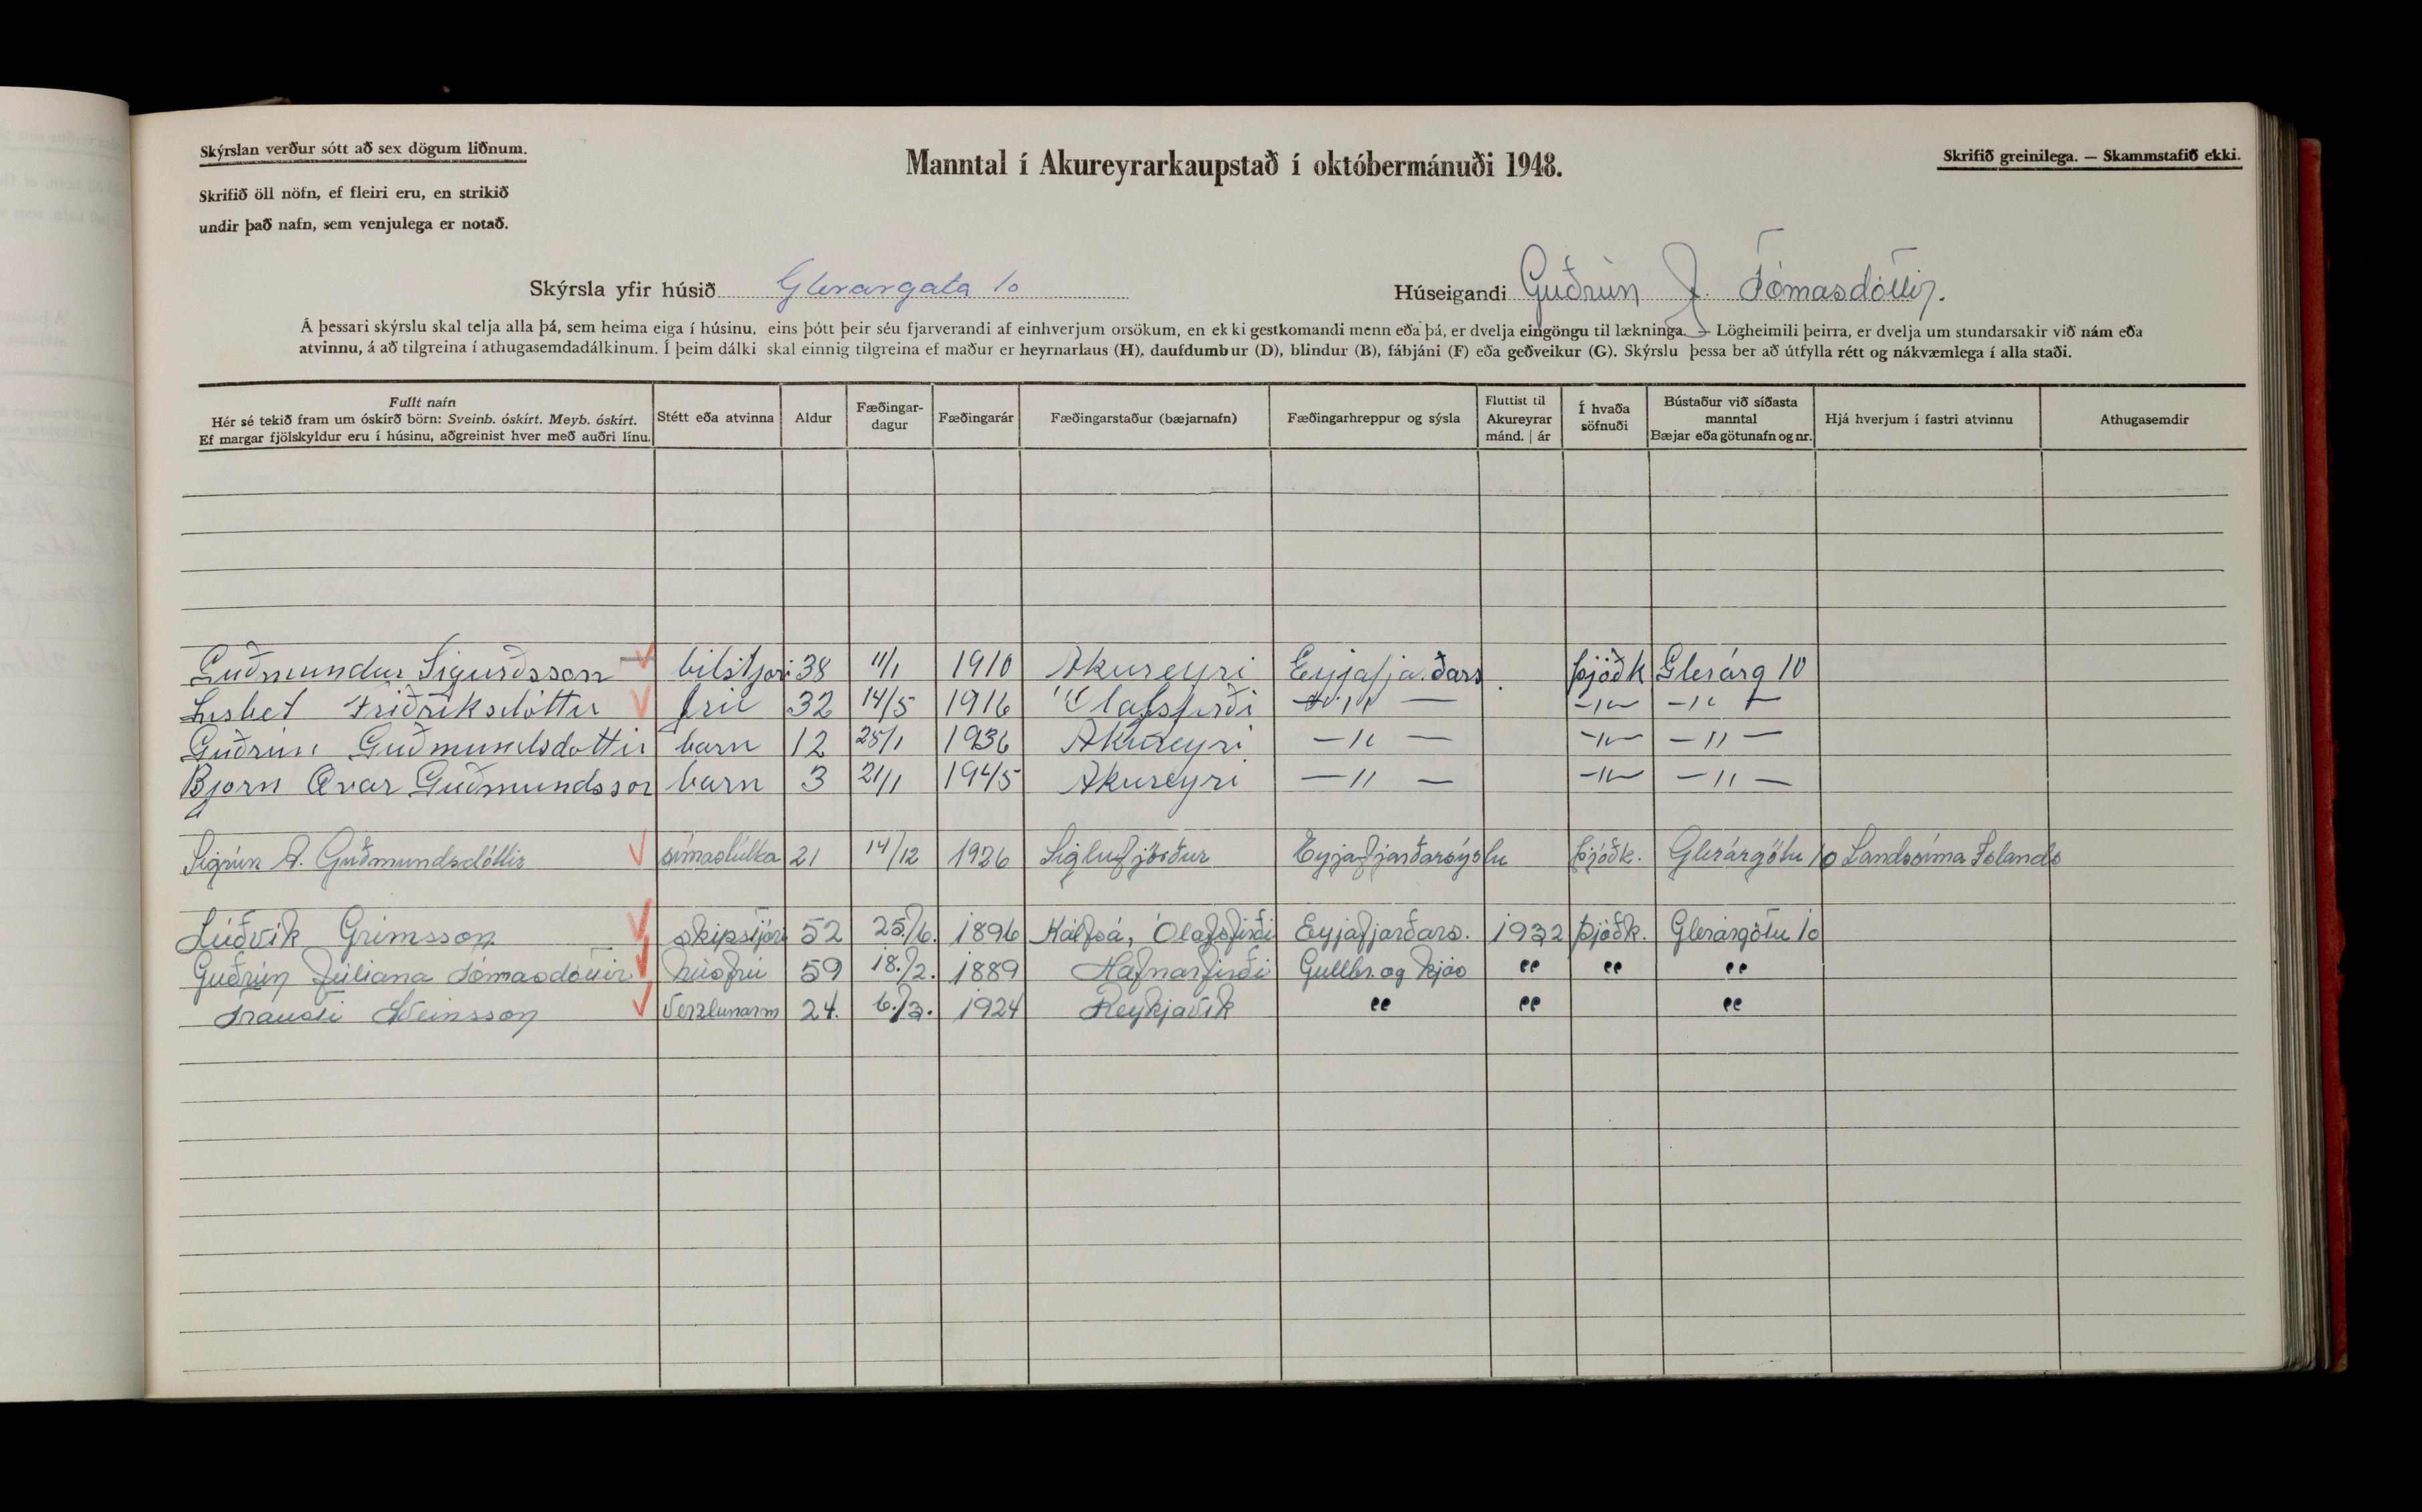 Skýrslan verður sótt að sex dögum liðnum.
Manntal í Akureyrarkaupstað í októbermánuði 1948.
Skrifið greinilega. — Skammstafið ekki.
Skrifið öll nöfn, ef fleiri eru, en strikið
undir það nafn, sem venjulega er notað.
Skýrsla yfir húsið Glerárgata 10
Húseigandi Guðrún J. Tómasdóttir.
Á þessari skýrslu skal telja alla þá, sem heima eiga í húsinu, eins þótt þeir séu fjarverandi af einhverjum orsökum, en ekki gestkomandi menn eða þá, er dvelja eingöngu til lækninga. — Lögheimili þeirra, er dvelja um stundarsakir við nám eða
atvinnu, á að tilgreina í athugasemdadálkinum. Í þeim dálki skal einnig tilgreina ef maður er heyrnarlaus (H), daufdumbur (D), blindur (B), fábjáni (F) eða geðveikur (G). Skýrslu þessa ber að útfylla rétt og nákvæmlega í alla staði.
Fullt nafn
Hér sé tekið fram um óskírð börn: Sveinb. óskírt. Meyb. óskírt.
Ef margar fjölskyldur eru í húsinu, aðgreinist hver með auðri línu.
Stétt eða atvinna
Aldur
Fæðingar-
dagur
Fæðingarár
Fæðingarstaður (bæjarnafn)
Fæðingarhreppur og sýsla
Fluttist til
Akureyrar
mánd. | ár
Í hvaða
söfnuði
Bústaður við síðasta
manntal
Bæjar eða götunafn og nr.
Hjá hverjum í fastri atvinnu
Athugasemdir
Guðmundur Sigurðsson bílstjóri 38 11/1 1910 Akureyri Eyjafja.ðars. Þjóðk Glerárg 10
Lisbet Friðriksdóttir frú 32 14/5 1916 Ólafsfirði — 〃 — — 〃 — — 〃 —
Guðrún Guðmundsdottir barn 12 25/1 1936 Akureyri — 〃 — — 〃 — — 〃 —
Bjorn Ævar Guðmundsson barn 3 21/1 1945 Akureyri — 〃 — — 〃 — — 〃 —
Sigrún A. Guðmundsdóttir símastúlka 21 14/12 1926 Siglufjörður Eyjafjarðarsýslu Þjóðk. Glerárgötu 10 Landssíma Íslands
Lúðvík Grímsson skipstjóri 52 25./6. 1896 Kálfsá, Ólafsfirði Eyjafjarðars. 1932 Þjóðk. Glerárgötu 10
Guðrún Júlíana Tómasdóttir húsfrú 59 18./2. 1889 Hafnarfirði Gullbr. og Kjós 〃 〃 〃
Trausti Sveinsson Verzlunarm 24. 6./3. 1924 Reykjavík 〃 〃 〃